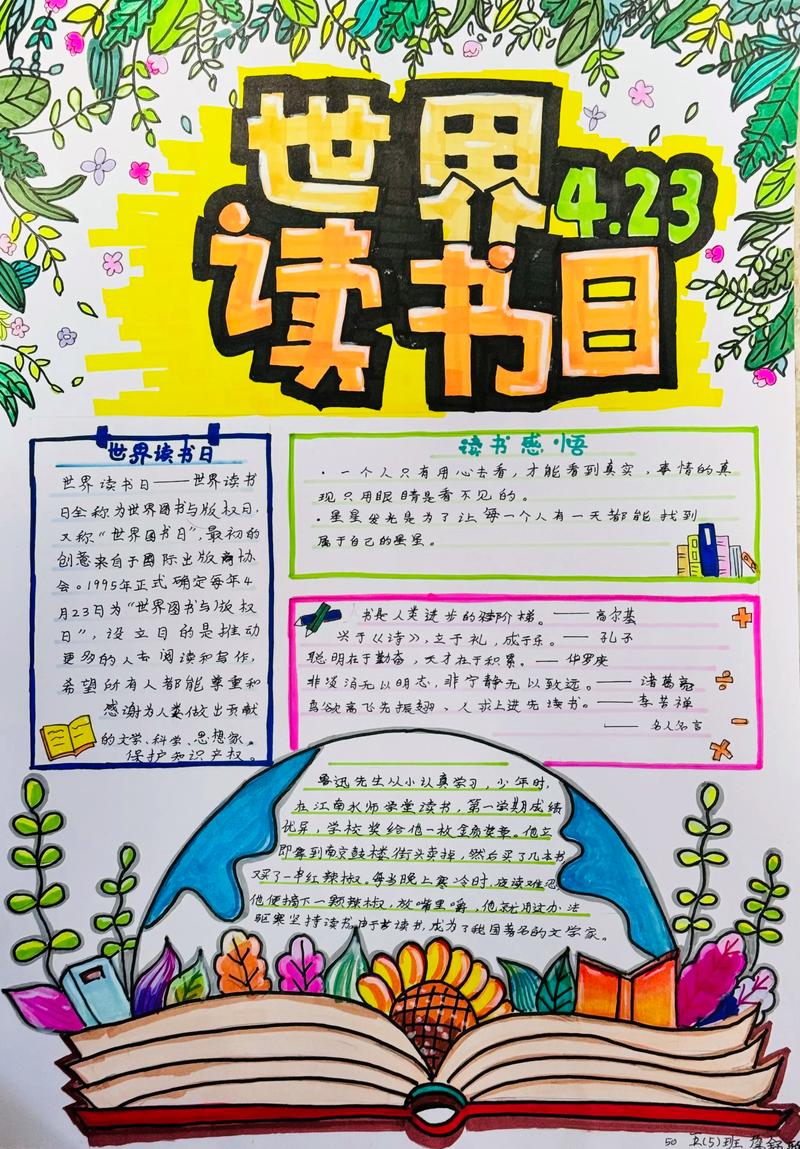 世界
4.23
读书日
世界读书日
世界读书日——世界读书
日全称为世界图书与版权日，
又称“世界图书日”，最初的
创意来自于国际出版商协
会。1995年正式确定每年4
月23日为“世界图书与版权
日”，设立目的是推动
更多的人去阅读和写作，
希望所有人都能尊重和
感谢为人类做出贡献
的文学、科学、思想家。
保护知识产权。
读书感悟
·一个人只有用心去看，才能看到真实，事情的真
现只用眼睛是看不见的。
·星星发光是为了让每一个人有一天都能找到
属于自己的星星。
书是人类进步的阶梯。——高尔基
兴于《诗》，立于礼，成于乐。——孔子
聪明在于勤奋，天才在于积累。——华罗庚
非淡泊无以明志，非宁静无以致远。——诸葛亮
鸟欲高飞先振翅，人求上进先读书。——李苦禅
——名人名言
鲁迅先生从小认真学习，少年时，
在江南水师学堂读书，第一学期成绩
优异，学校奖给他一枚金质奖章。他立
即拿到南京鼓楼街头卖掉，然后买了几本书
又买了一串红辣椒。每当晚上寒冷时，夜读难忍
他便摘下一颗辣椒，放嘴里嚼，他就用这办法
驱寒坚持读书。由于苦读书，成为了我国著名的文学家。
50 五(5)班